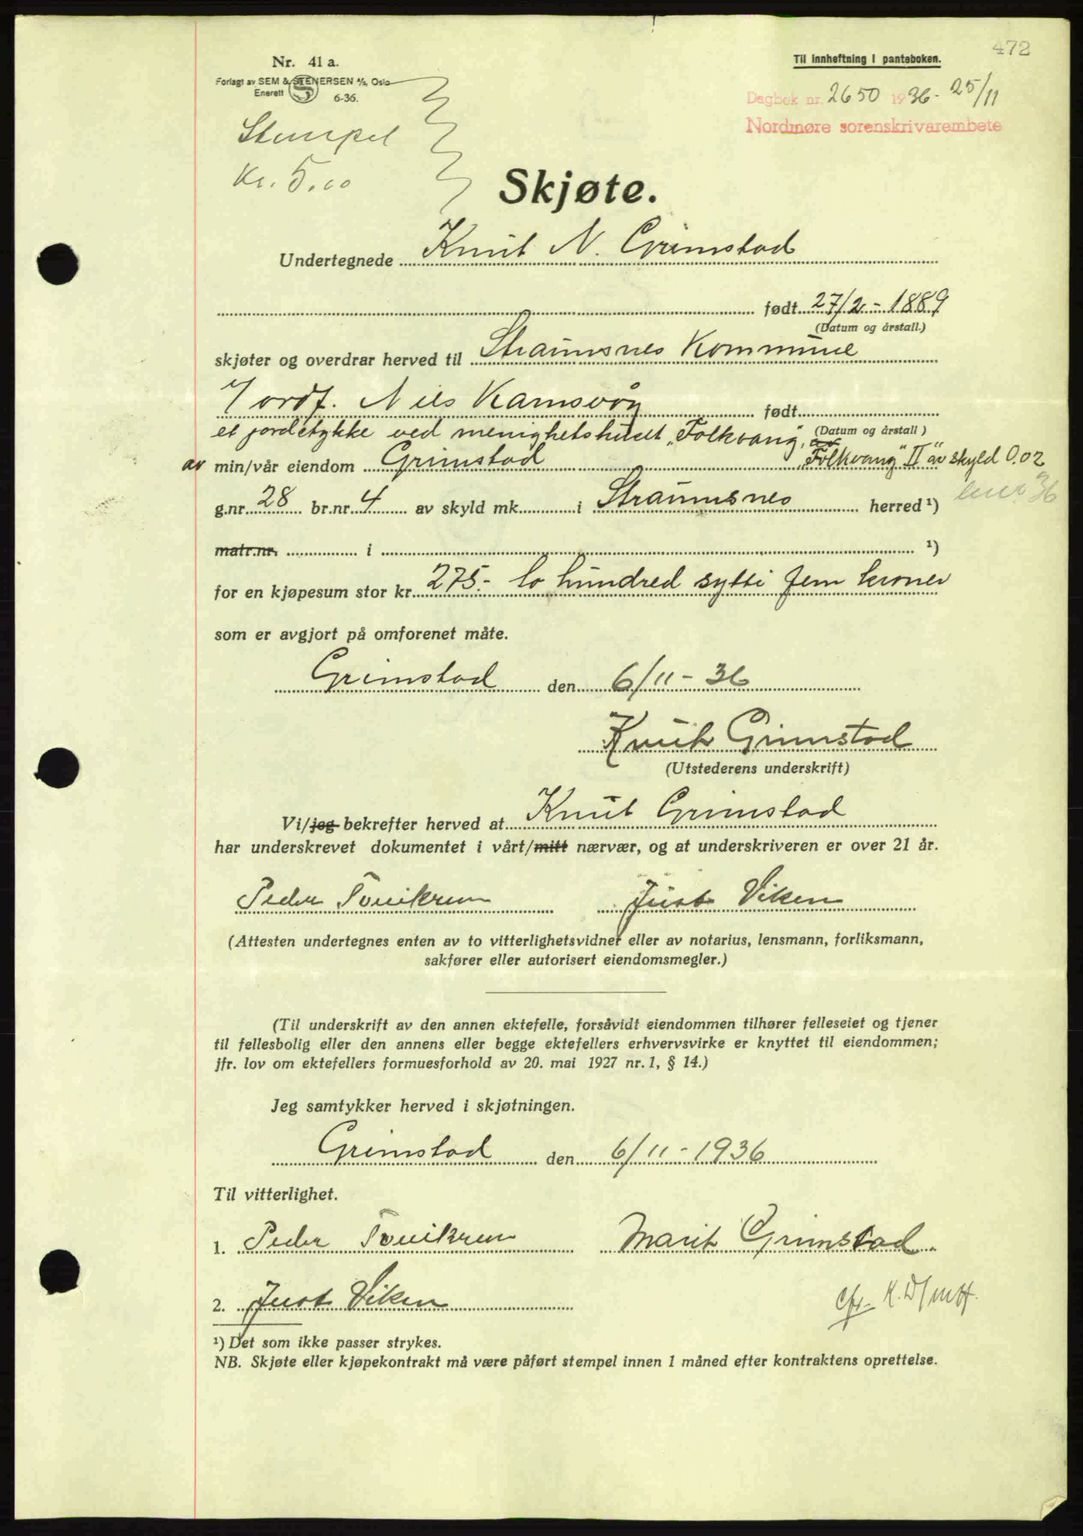 472
Nr. 41 a.
Forlagt av SEM & STENERSEN A/S, Oslo
Enerett 6-36.
Til innheftning i panteboken.
Dagbok nr. 2650 1936 - 25/11
Nordmøre sorenskrivarembete
Stempel
Kr. 5.00
Skjøte.
Undertegnede Knut N. Grimstad
født 27/2 - 1889
(Datum og årstall.)
skjøter og overdrar herved til Straumsnes Kommune
V/ordf. Nils Kamsvåg født
(Datum og årstall)
et jordstykke ved menighetshuset "Folkvang",
av min/vår eiendom Grimstad "Folkvang" II" av skyld 0.02
g.nr. 28 br.nr. 4 av skyld mk. i Straumsnes herred ¹)
matr.nr. i ¹)
for en kjøpesum stor kr. 275.- to hundred sytti fem kroner
som er avgjort på omforenet måte.
Grimstad den 6/11 - 36
Knut Grimstad
(Utstederens underskrift)
Vi/jeg bekrefter herved at Knut Grimstad
har underskrevet dokumentet i vårt/mitt nærvær, og at underskriveren er over 21 år.
Peder Tvuikrem Just Viken
(Attesten undertegnes enten av to vitterlighetsvidner eller av notarius, lensmann, forliksmann,
sakfører eller autorisert eiendomsmegler.)
(Til underskrift av den annen ektefelle, forsåvidt eiendommen tilhører felleseiet og tjener
til fellesbolig eller den annens eller begge ektefellers erhvervsvirke er knyttet til eiendommen;
jfr. lov om ektefellers formuesforhold av 20. mai 1927 nr. 1, § 14.)
Jeg samtykker herved i skjøtningen.
Grimstad den 6/11 - 1936
Til vitterlighet.
1. Peder Tvuikrem Marit Grimstad
2. Just Viken
¹) Det som ikke passer strykes.
NB. Skjøte eller kjøpekontrakt må være påført stempel innen 1 måned efter kontraktens oprettelse.